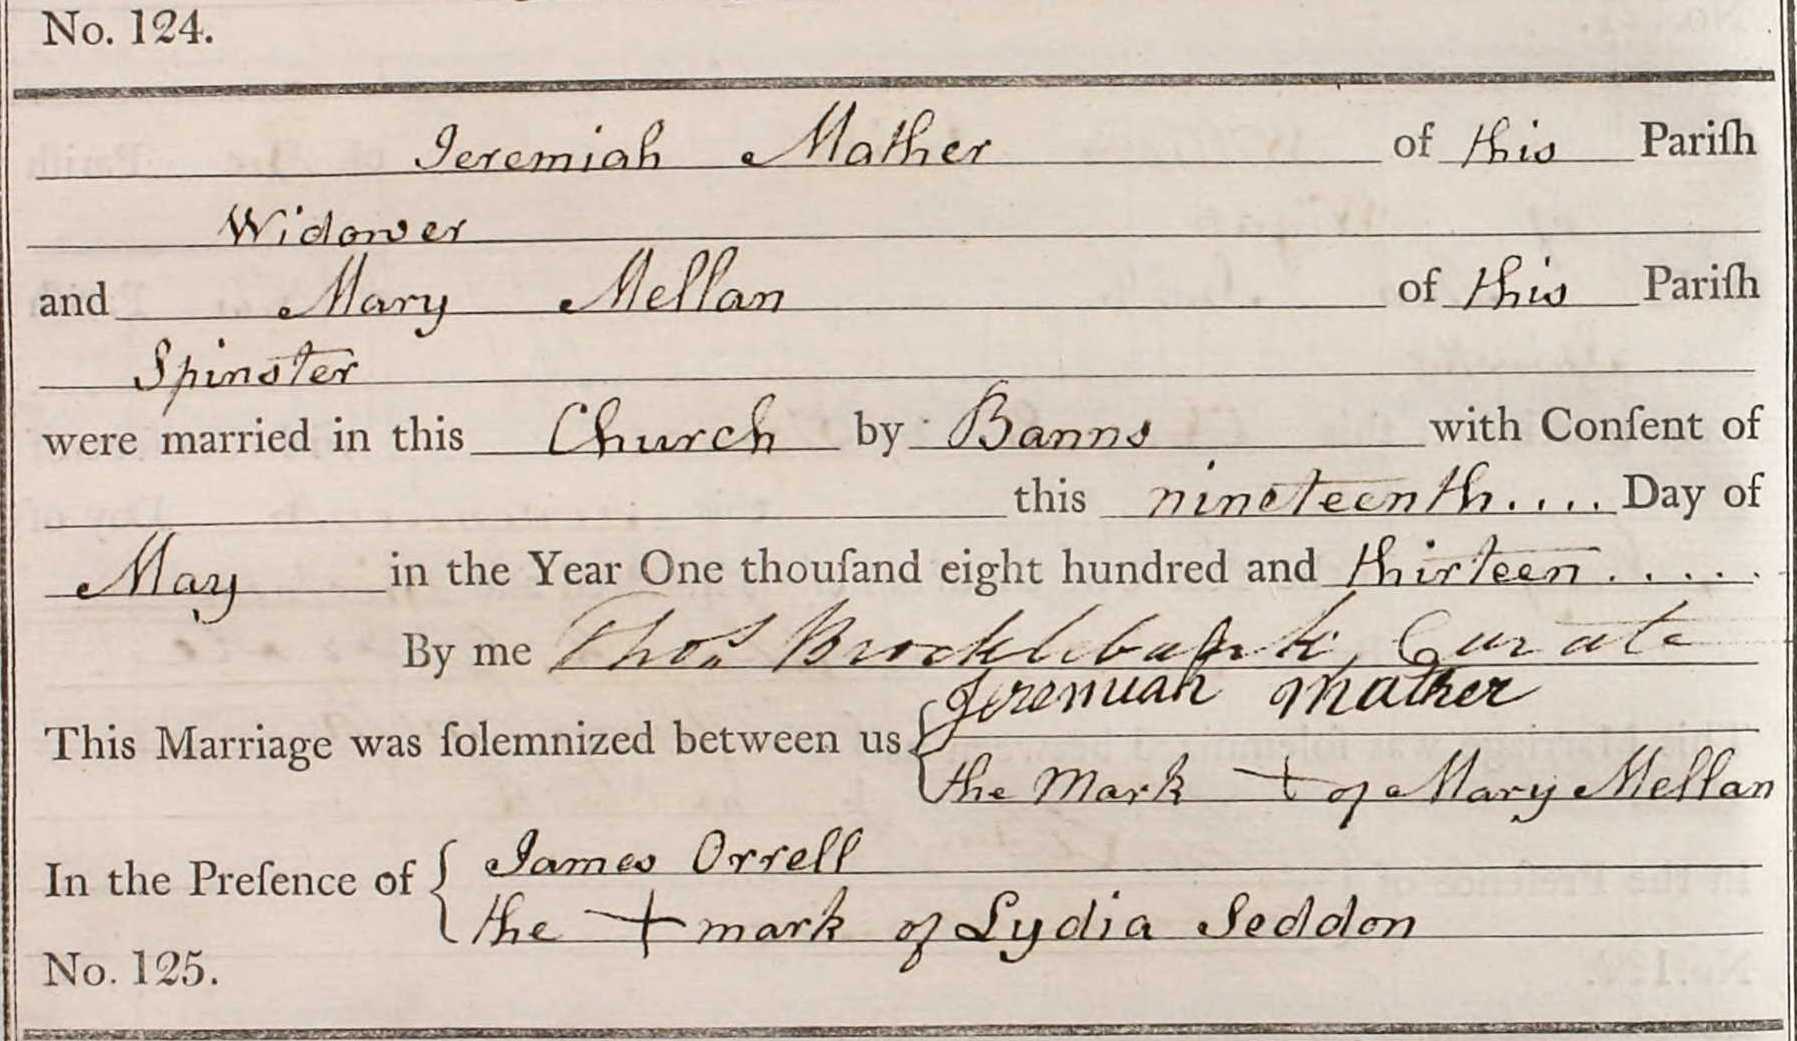 No. 124.
Jeremiah Mather of this Pariſh
Widower
and Mary Mellan of this Pariſh
Spinster
were married in this Church by Banns with Conſent of
this nineteenth.... Day of
May in the Year One thouſand eight hundred and thirteen.....
By me Thos. Brocklebank, Curate
This Marriage was ſolemnized between us { Jeremiah Mather
the Mark + of Mary Mellan
In the Preſence of { James Orrell
the + mark of Lydia Seddon
No. 125.